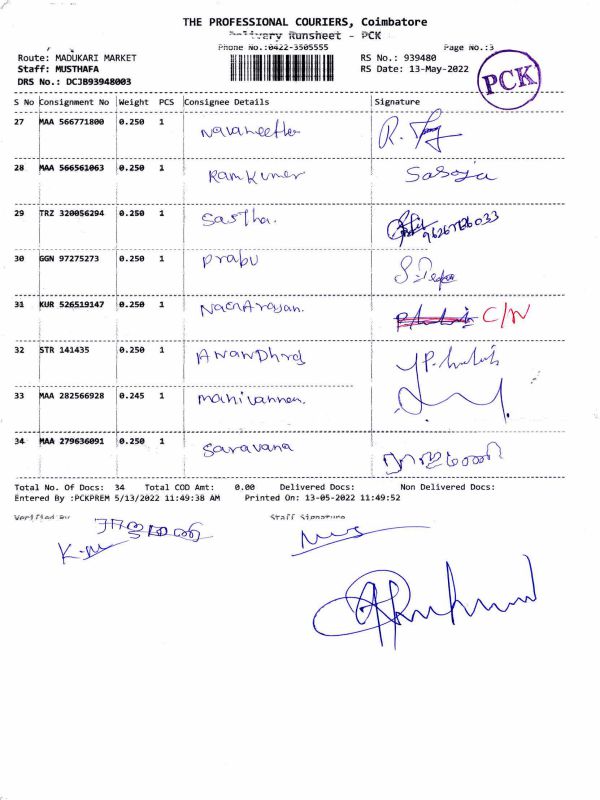 THE PROFESSIONAL COURIERS, Coimbatore
Delivery Runsheet - PCK
Phone No.:0422-3505555
Page No.:3
Route: MADUKARI MARKET
RS No.: 939480
Staff: MUSTHAFA
RS Date: 13-May-2022
DRS No.: DCJB93948003
PCK
S No Consignment No Weight PCS Consignee Details Signature
27 MAA 566771800 0.250 1 Navaneetha
28 MAA 566561063 0.250 1 Ramkumar Saroja
29 TRZ 320056294 0.250 1 Sastha.
30 GGN 97275273 0.250 1 Prabu
31 KUR 526519147 0.250 1 Nagarajan. C/N
32 STR 141435 0.250 1
33 MAA 282566928 0.245 1 Manivannan.
34 MAA 279636091 0.250 1 Saravana
Total No. Of Docs: 34 Total COD Amt: 0.00 Delivered Docs: Non Delivered Docs:
Entered By :PCKPREM 5/13/2022 11:49:38 AM Printed On: 13-05-2022 11:49:52
Verified By Staff Signature